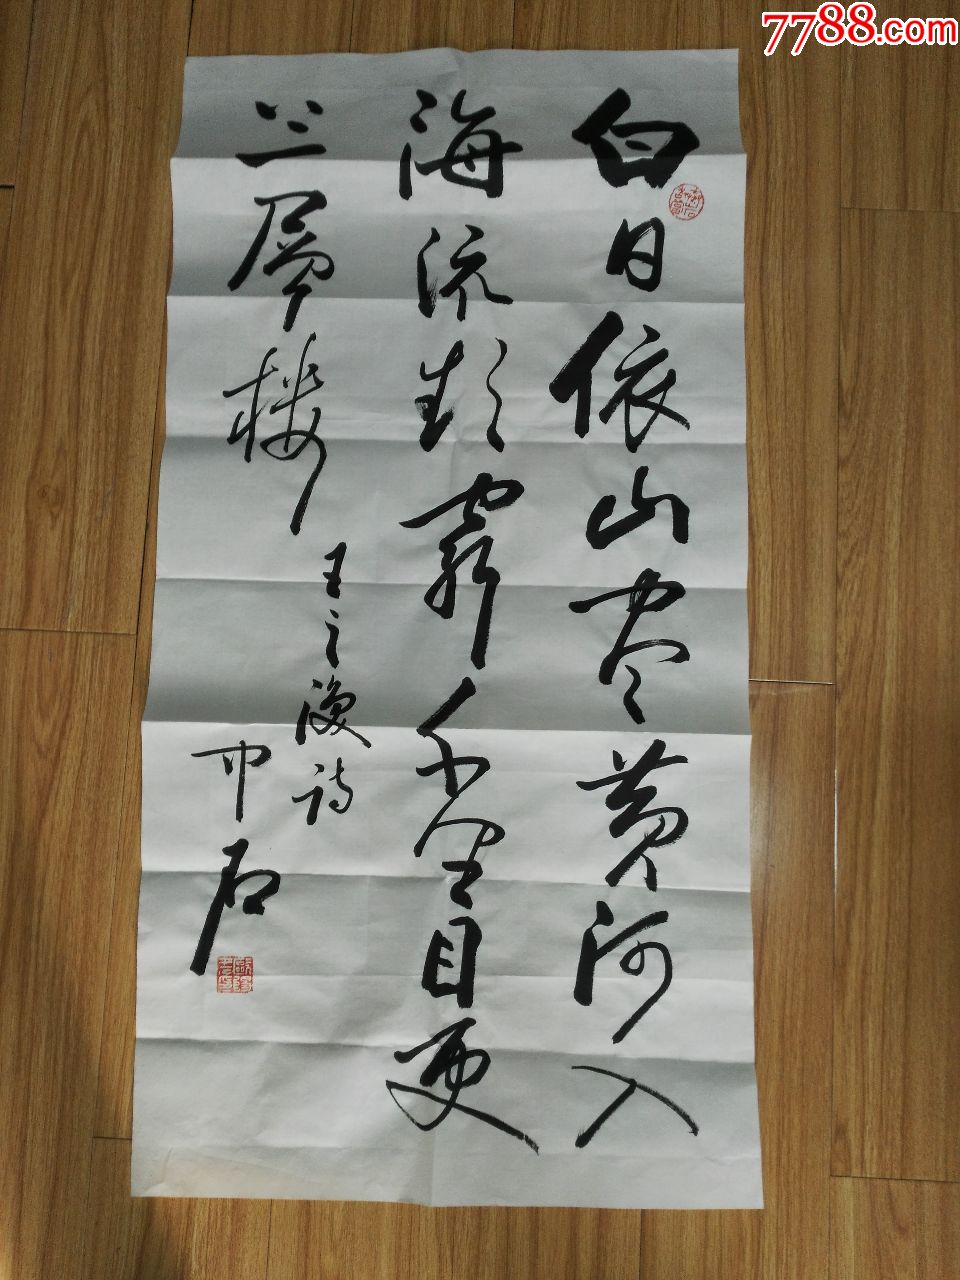 7788.com
白日依山尽黄河入
海流欲穷千里目更
上一层楼
王之涣诗
中石